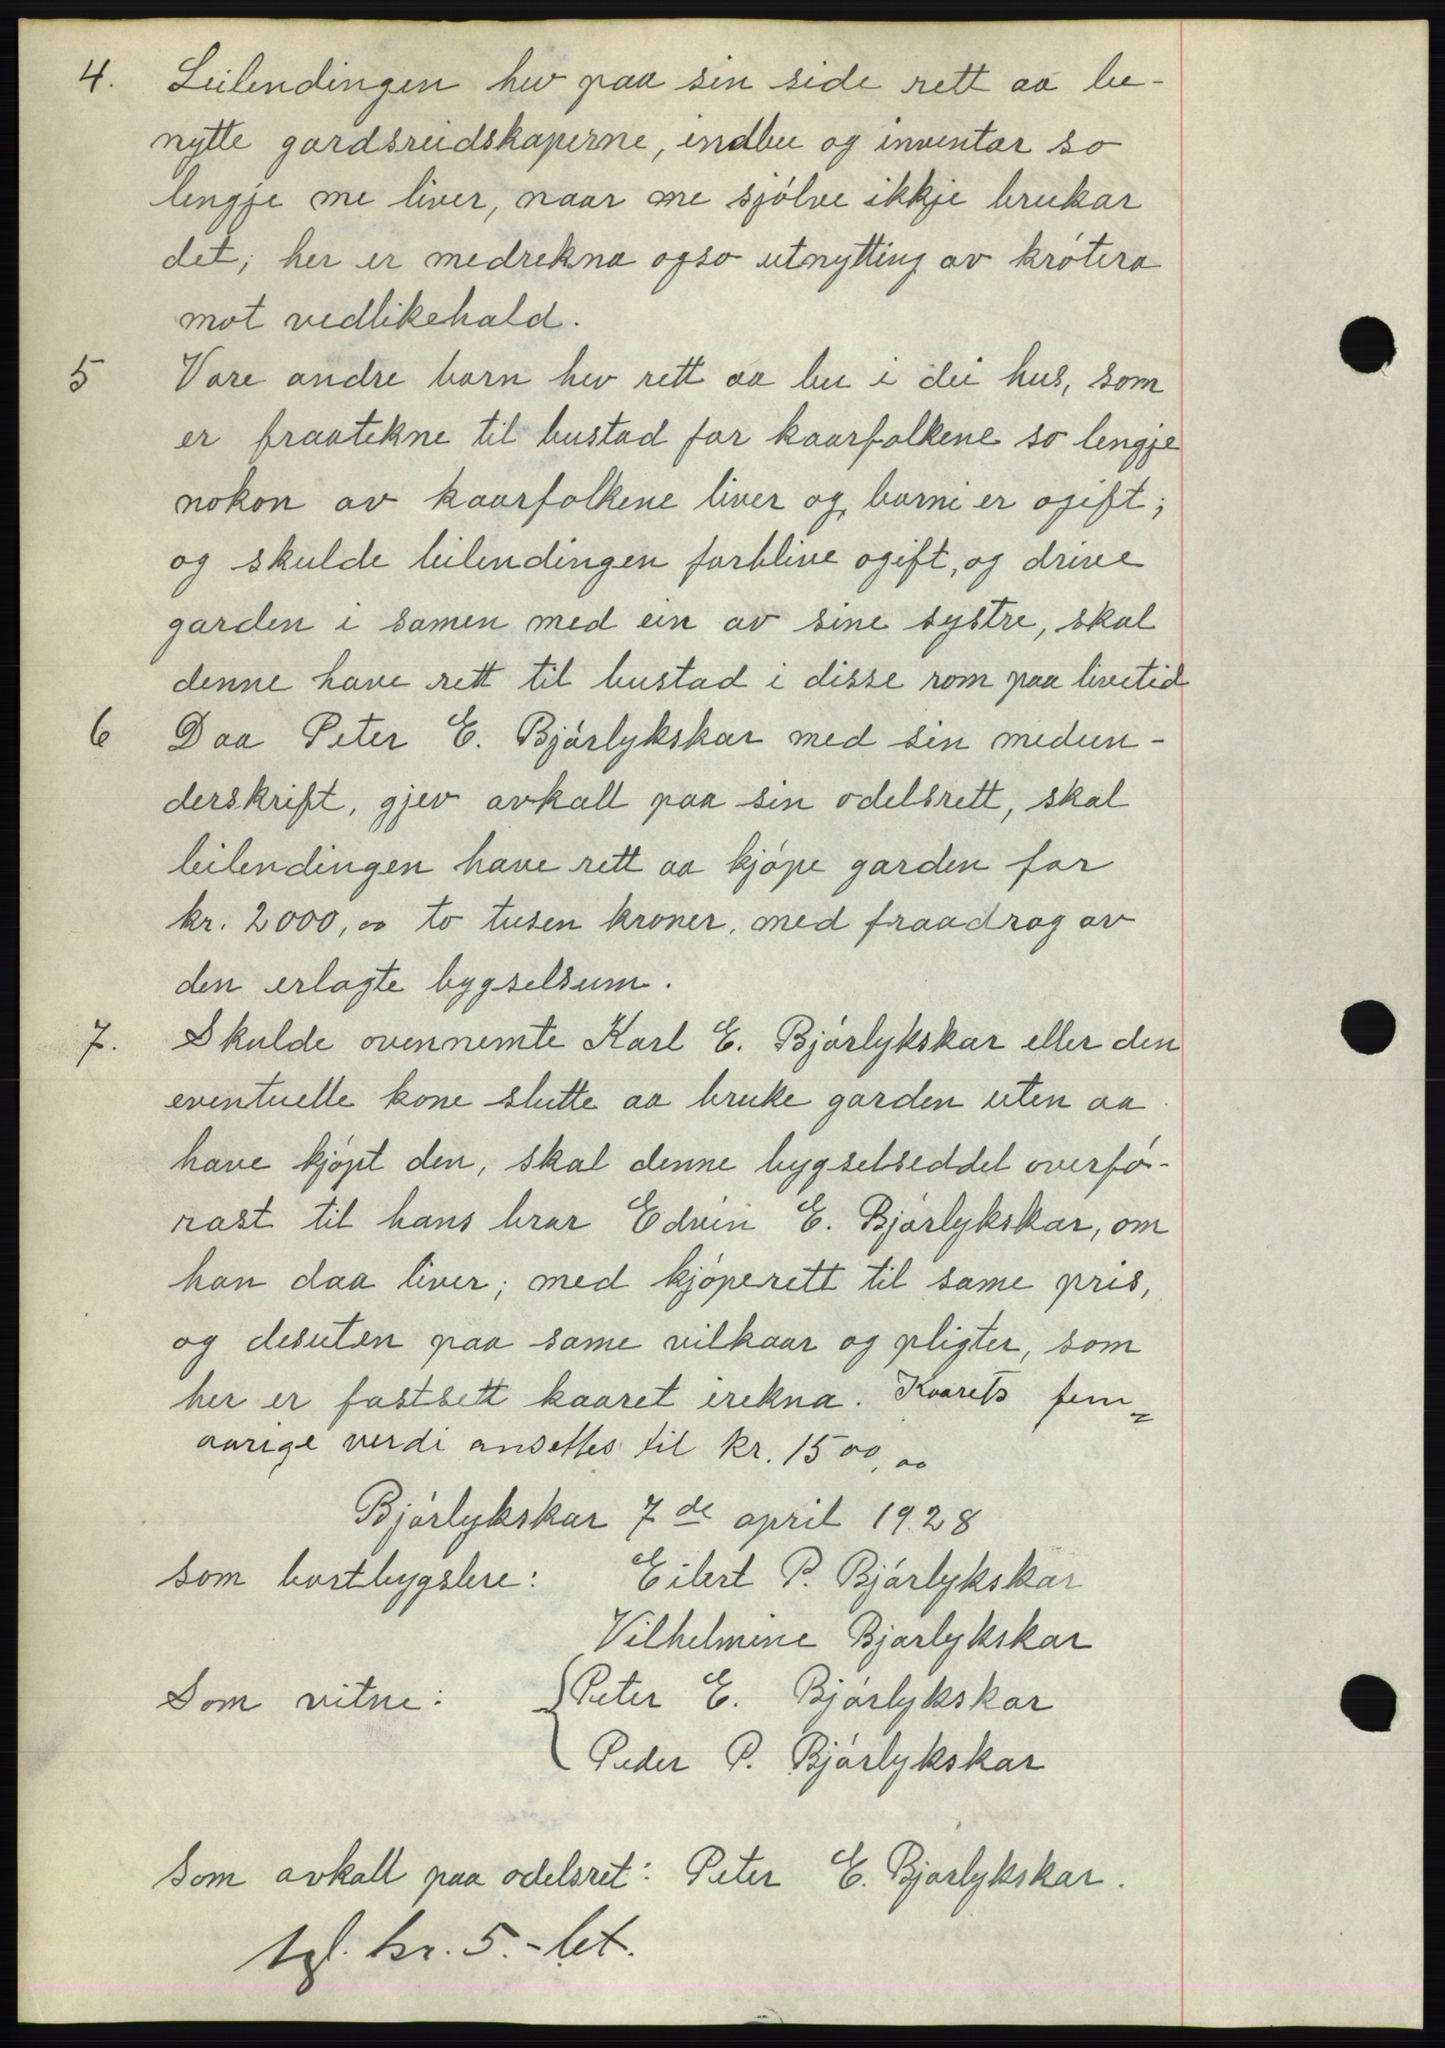 4. Leilendingen hev paa sin side rett aa be-
nytte gardsreidskaperne, indbu og inventar so
lengje me liver, naar me sjølve ikkje brukar
det; her er medrekna ogso utnytting av krøtera
mot vedlikehald.
5 Vore andre born hev rett aa bu i dei hus, som
er fraatekne til bustad for kaarfolkene so lengje
nokon av kaarfolkene liver og borni er ogift;
og skulde leilendingen forblive ogift, og drive
garden i samen med ein av sine systre, skal
denne have rett til bustad i disse rom paa livetid
6 Daa Peter E. Bjørlykskar med sin medun-
derskrift, gjev avkall paa sin odelsrett, skal
leilendingen have rett aa kjøpe garden for
kr. 2000,00 to tusen kroner, med fraadrag av
den erlagte bygselsum.
7. Skulde ovennemte Karl E. Bjørlykskar eller den
eventuelle kone slutte aa bruke garden uten aa
have kjøpt den, skal denne bygselseddel overfø-
rast til hans bror Edvin E. Bjørlykskar, om
han daa liver; med kjøperett til same pris,
og desuten paa same vilkaar og pligter, som
her er fastsett kaaret irekna. Kaarets fem=
aarige verdi ansettes til kr. 1500,00
Bjørlykskar 7de april 1928
Som bortbygslere: Eilert P. Bjørlykskar
Vilhelmine Bjørlykskar
Som vitne: Peter E. Bjørlykskar
Peder P. Bjørlykskar
Som avkall paa odelsret: Peter E. Bjørlykskar.
tgl. kr. 5.- bet.